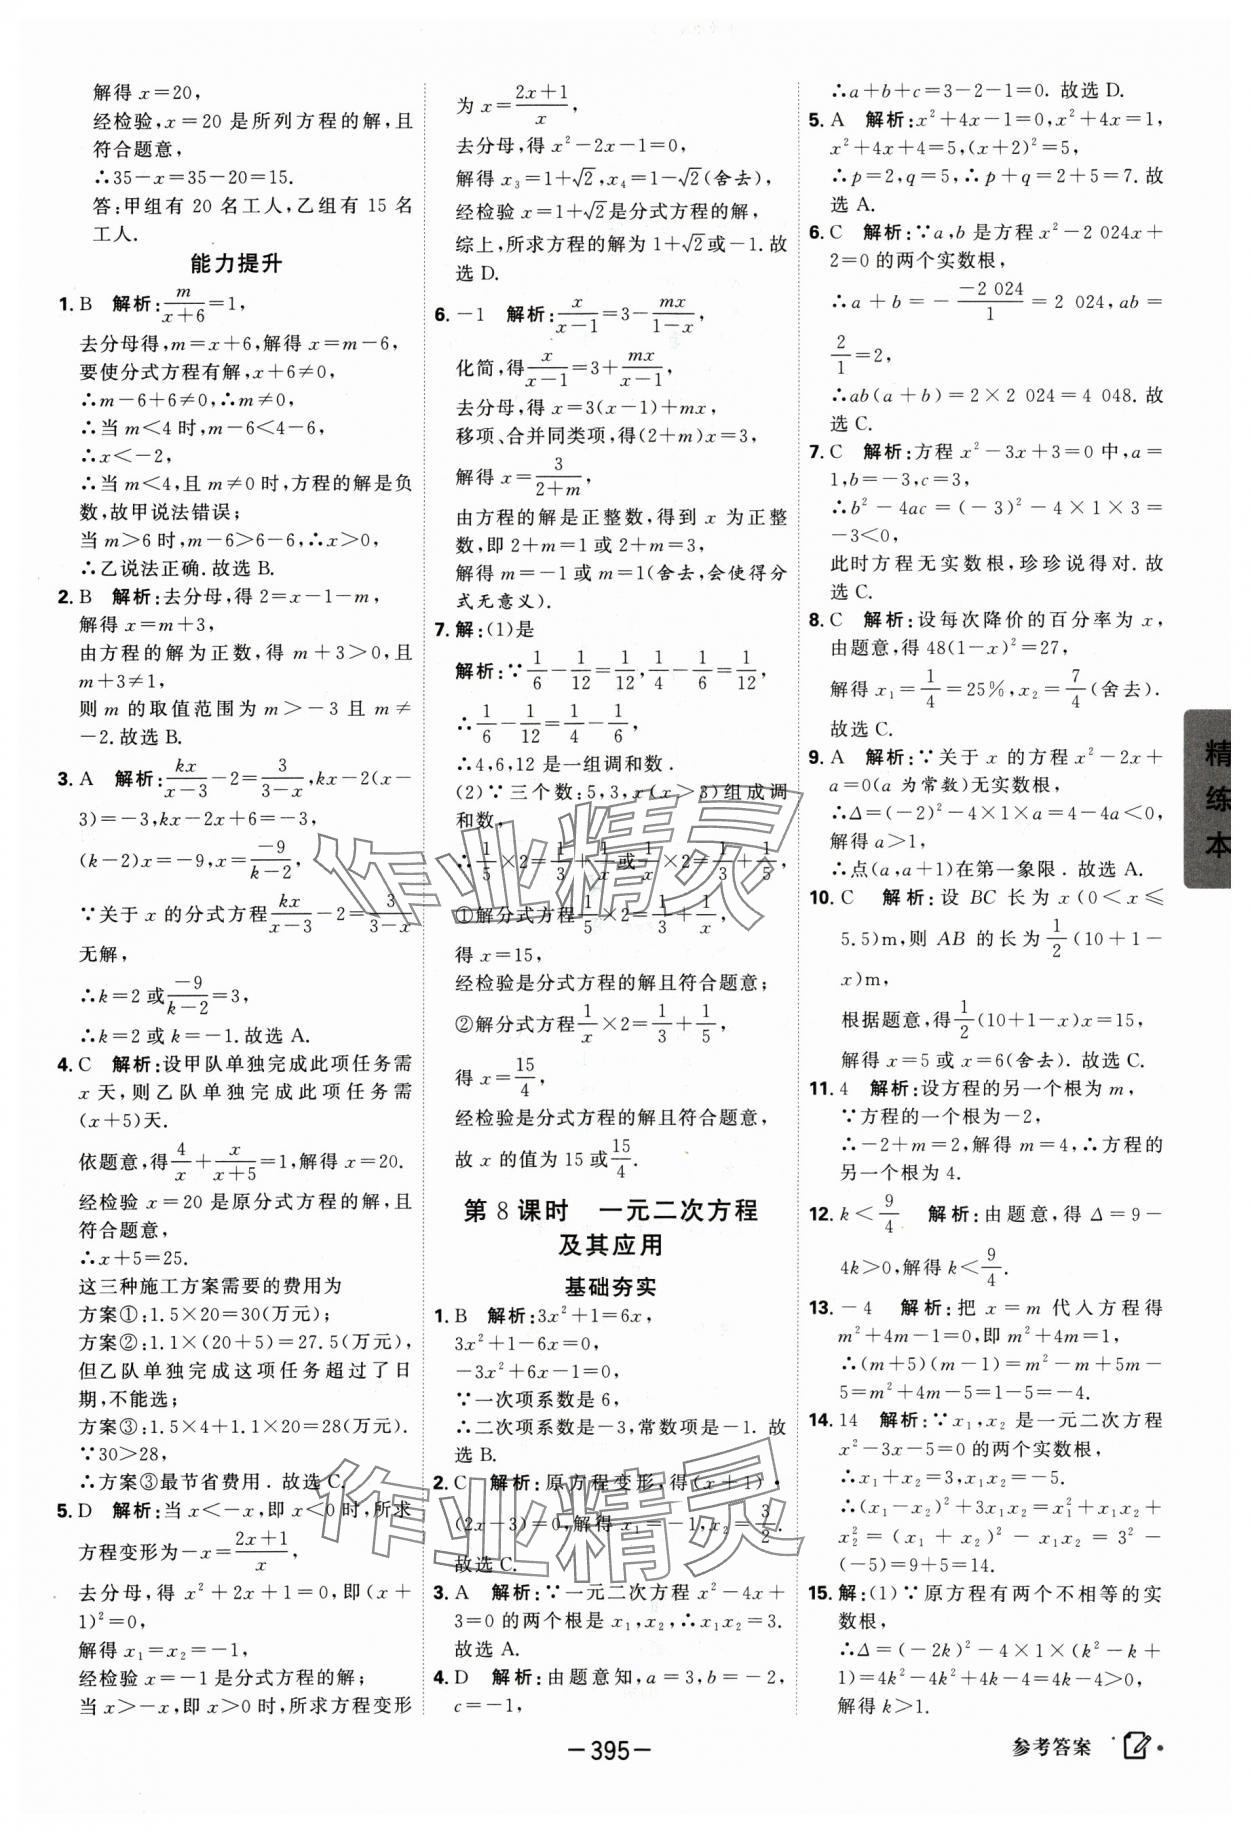 解得 x=20,
经检验,x=20 是所列方程的解,且
符合题意,
∴35-x=35-20=15.
答:甲组有 20 名工人,乙组有 15 名
工人.
能力提升
1. B 解析:m/(x+6)=1,
去分母得,m=x+6,解得 x=m-6,
要使分式方程有解,x+6≠0,
∴m-6+6≠0,∴m≠0,
∴当 m<4 时,m-6<4-6,
∴x<-2,
∴当 m<4,且 m≠0 时,方程的解是负
数,故甲说法错误;
当 m>6 时,m-6>6-6,∴x>0,
∴乙说法正确.故选 B.
2. B 解析:去分母,得 2=x-1-m,
解得 x=m+3,
由方程的解为正数,得 m+3>0,且
m+3≠1,
则 m 的取值范围为 m>-3 且 m≠
-2.故选 B.
3. A 解析:kx/(x-3)-2=3/(3-x),kx-2(x-
3)=-3,kx-2x+6=-3,
(k-2)x=-9,x=-9/(k-2),
∵关于 x 的分式方程kx/(x-3)-2=3/(3-x)
无解,
∴k=2 或-9/(k-2)=3,
∴k=2 或 k=-1.故选 A.
4. C 解析:设甲队单独完成此项任务需
x 天,则乙队单独完成此项任务需
(x+5)天.
依题意,得4/x+x/(x+5)=1,解得 x=20.
经检验 x=20 是原分式方程的解,且
符合题意,
∴x+5=25.
这三种施工方案需要的费用为
方案①:1.5×20=30(万元);
方案②:1.1×(20+5)=27.5(万元),
但乙队单独完成这项任务超过了日
期,不能选;
方案③:1.5×4+1.1×20=28(万元).
∵30>28,
∴方案③最节省费用.故选 C.
5. D 解析:当 x<-x,即 x<0 时,所求
方程变形为-x=(2x+1)/x,
去分母,得 x²+2x+1=0,即(x+
1)²=0,
解得 x₁=x₂=-1,
经检验 x=-1 是分式方程的解;
当 x>-x,即 x>0 时,所求方程变形
为 x=(2x+1)/x,
去分母,得 x²-2x-1=0,
解得 x₃=1+√2,x₄=1-√2(舍去),
经检验 x=1+√2是分式方程的解,
综上,所求方程的解为 1+√2或-1.故
选 D.
6. -1 解析:x/(x-1)=3-mx/(1-x),
化简,得x/(x-1)=3+mx/(x-1),
去分母,得 x=3(x-1)+mx,
移项、合并同类项,得(2+m)x=3,
解得 x=3/(2+m),
由方程的解是正整数,得到 x 为正整
数,即 2+m=1 或 2+m=3,
解得 m=-1 或 m=1(舍去,会使得分
式无意义).
7. 解:(1)是
解析:∵1/6-1/12=1/12,1/4-1/6=1/12,
∴1/6-1/12=1/4-1/6,
∴4,6,12 是一组调和数.
(2)∵三个数:5,3,x(x>3)组成调
和数,
∴1/5×2=1/3+1/x或1/x×2=1/3+1/5,
①解分式方程1/5×2=1/3+1/x,
得 x=15,
经检验是分式方程的解且符合题意;
②解分式方程1/x×2=1/3+1/5,
得 x=15/4,
经检验是分式方程的解且符合题意,
故 x 的值为 15 或15/4.
第 8 课时 一元二次方程
及其应用
基础夯实
1. B 解析:3x²+1=6x,
3x²+1-6x=0,
-3x²+6x-1=0,
∵一次项系数是 6,
∴二次项系数是-3,常数项是-1.故
选 B.
2. C 解析:原方程变形,得(x+1)·
(2x-3)=0,解得 x₁=-1,x₂=3/2.
故选 C.
3. A 解析:∵一元二次方程 x²-4x+
3=0 的两个根是 x₁,x₂,∴x₁x₂=3.
故选 A.
4. D 解析:由题意知,a=3,b=-2,
c=-1,
∴a+b+c=3-2-1=0.故选 D.
5. A 解析:x²+4x-1=0,x²+4x=1,
x²+4x+4=5,(x+2)²=5,
∴p=2,q=5,∴p+q=2+5=7.故
选 A.
6. C 解析:∵a,b 是方程 x²-2 024x+
2=0 的两个实数根,
∴a+b=-(-2 024)/1=2 024,ab=
2/1=2,
∴ab(a+b)=2×2 024=4 048.故
选 C.
7. C 解析:方程 x²-3x+3=0 中,a=
1,b=-3,c=3,
∴b²-4ac=(-3)²-4×1×3=
-3<0,
此时方程无实数根,珍珍说得对.故
选 C.
8. C 解析:设每次降价的百分率为 x,
由题意,得 48(1-x)²=27,
解得 x₁=1/4=25%,x₂=7/4(舍去).
故选 C.
9. A 解析:∵关于 x 的方程 x²-2x+
a=0(a 为常数)无实数根,
∴Δ=(-2)²-4×1×a=4-4a<0,
解得 a>1,
∴点(a,a+1)在第一象限.故选 A.
10. C 解析:设 BC 长为 x(0<x≤
5.5)m,则 AB 的长为1/2(10+1-
x)m,
根据题意,得1/2(10+1-x)x=15,
解得 x=5 或 x=6(舍去).故选 C.
11. 4 解析:设方程的另一个根为 m,
∵方程的一个根为-2,
∴-2+m=2,解得 m=4,∴方程的
另一个根为 4.
12. k<9/4 解析:由题意,得 Δ=9-
4k>0,解得 k<9/4.
13. -4 解析:把 x=m 代入方程得
m²+4m-1=0,即 m²+4m=1,
∴(m+5)(m-1)=m²-m+5m-
5=m²+4m-5=1-5=-4.
14. 14 解析:∵x₁,x₂ 是一元二次方程
x²-3x-5=0 的两个实数根,
∴x₁+x₂=3,x₁x₂=-5.
∴(x₁-x₂)²+3x₁x₂=x₁²+x₁x₂+
x₂²=(x₁+x₂)²-x₁x₂=3²-
(-5)=9+5=14.
15. 解:(1)∵原方程有两个不相等的实
数根,
∴Δ=(-2k)²-4×1×(k²-k+
1)=4k²-4k²+4k-4=4k-4>0,
解得 k>1.
精练本
作业精灵
作业精灵
-395-
参考答案